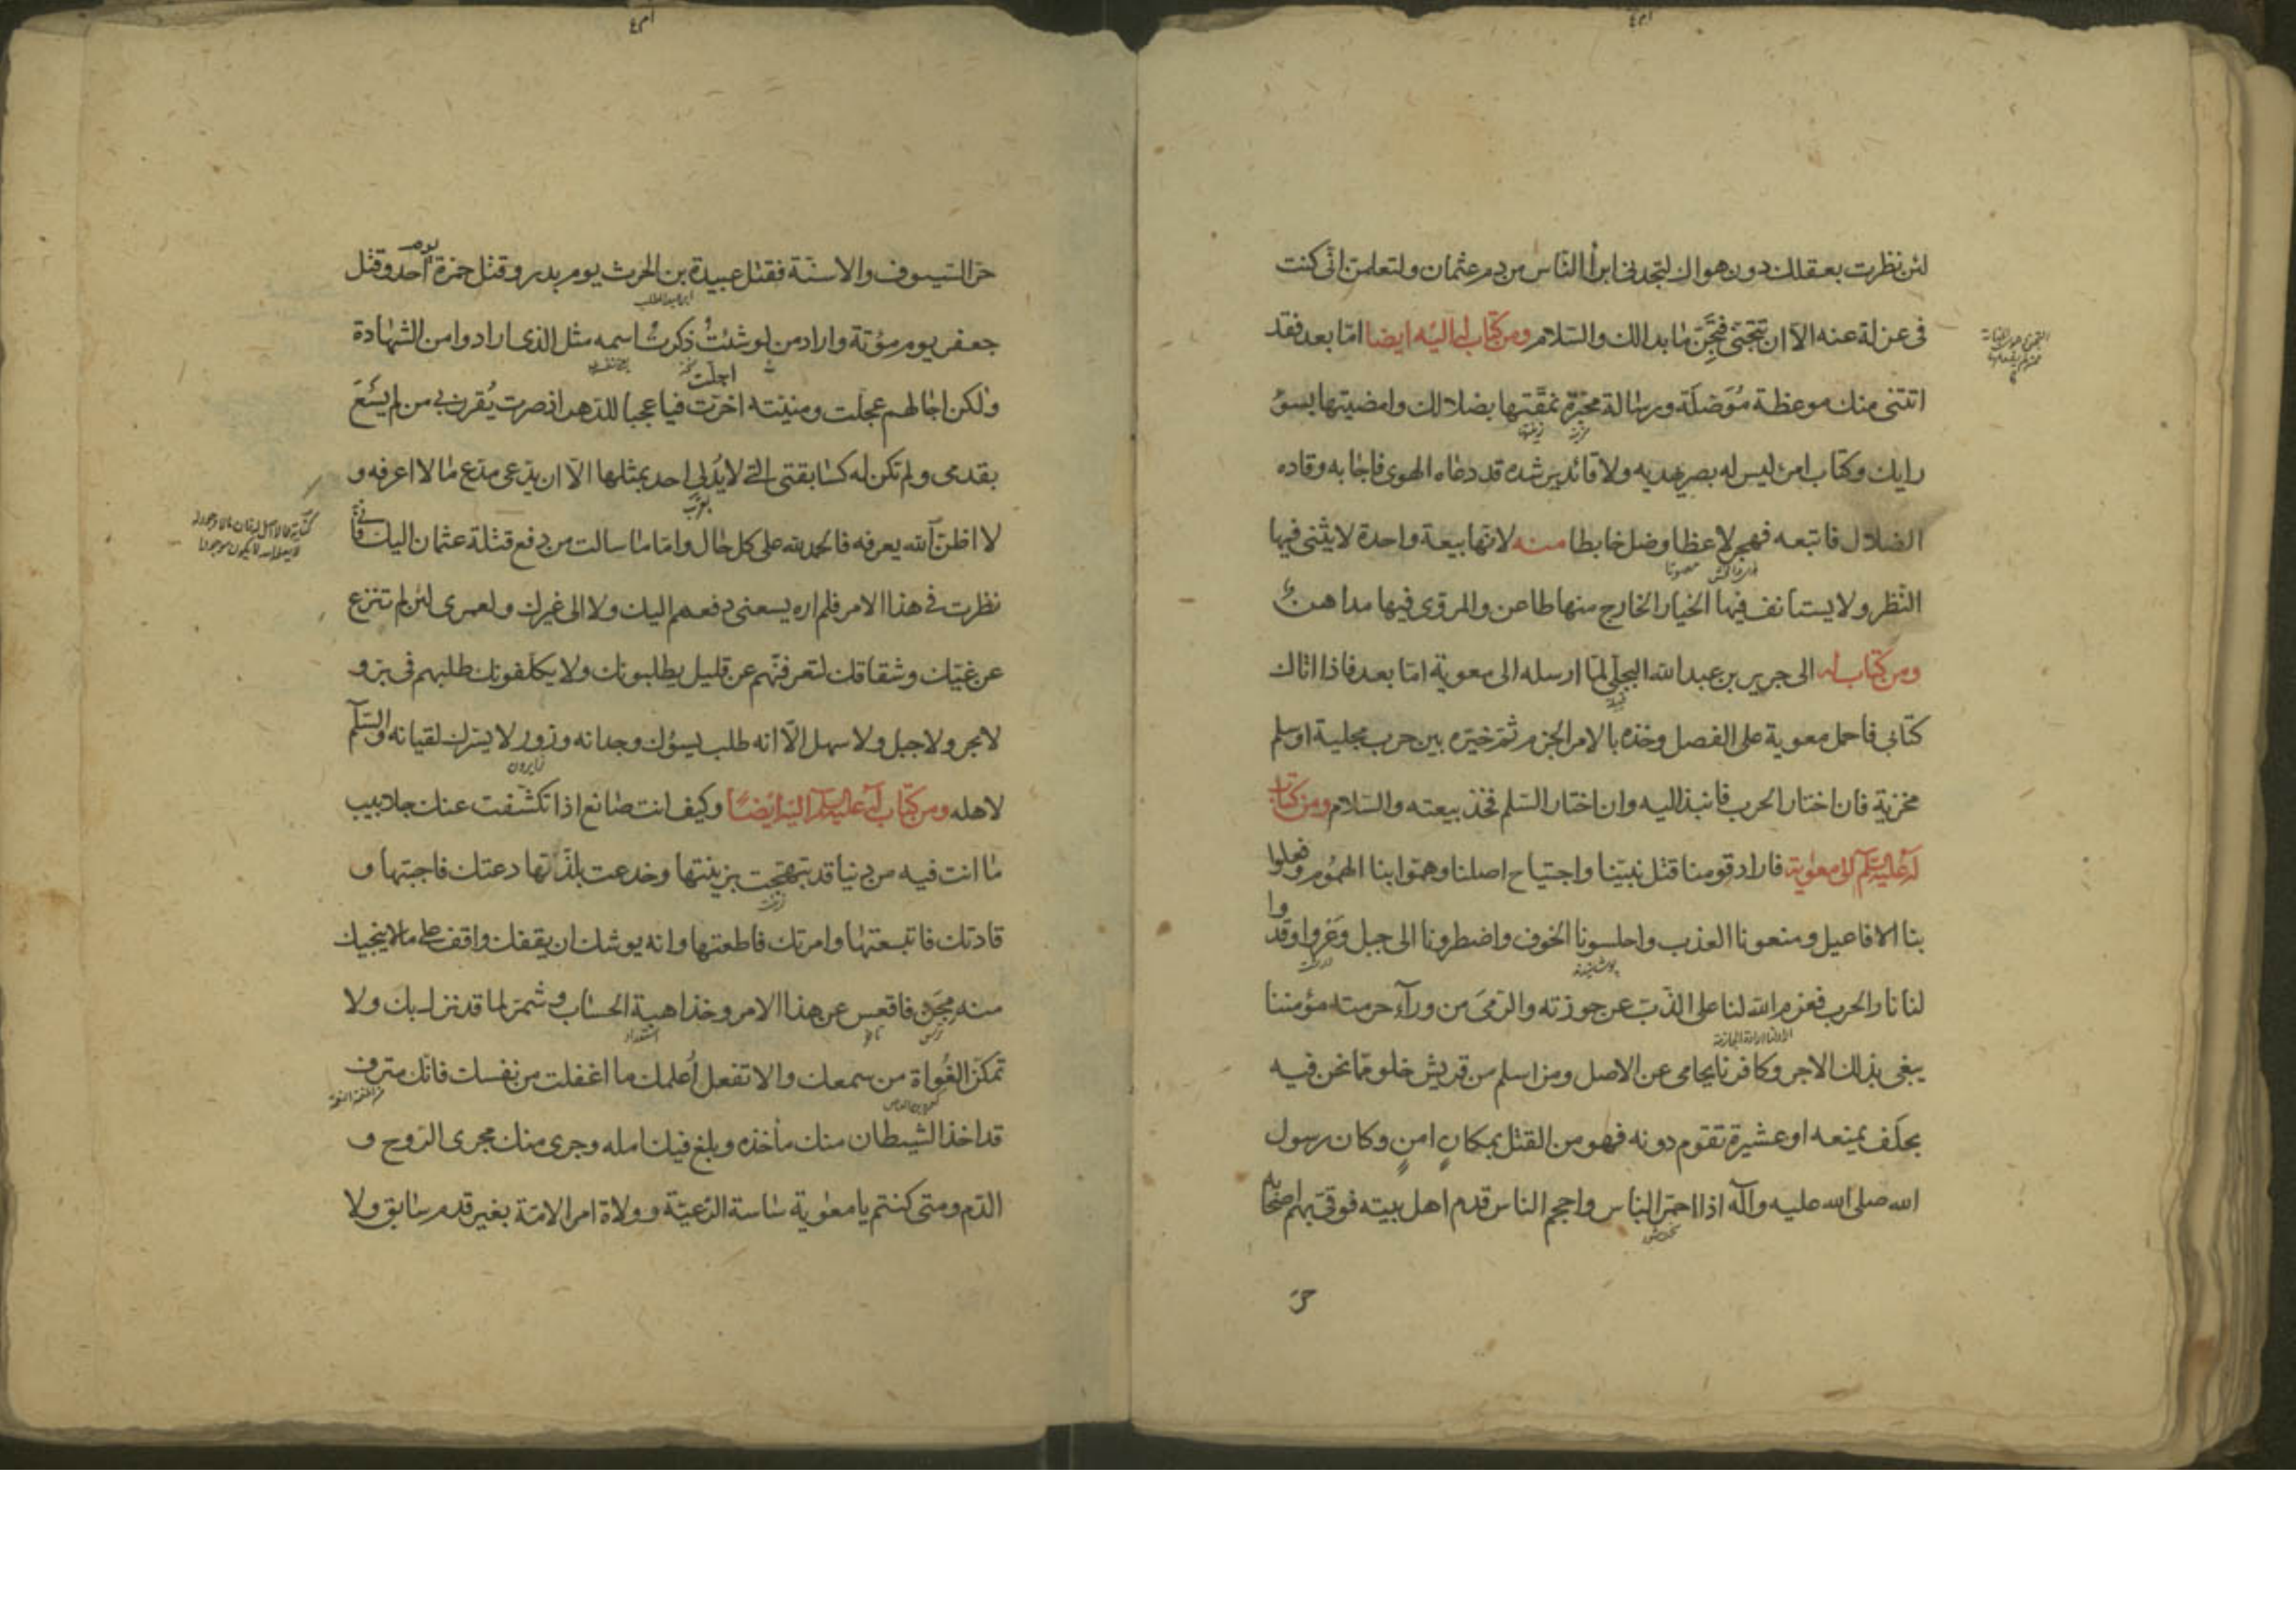 لئن نظرت بعقلك دون هواك لتجدنی ابرأ الناس من دم عثمان ولتعلمن انّی کنت
فی عزلة عنه الّا ان تتجنّی فتجنّ ما بدا لك والسّلام ومن کتاب له الیه ایضا امّا بعد فقد
اتتنی منك موعظة مُوَصّلَة ورسالة محبّرة نمّقتها بضلالك وامضیتها بسوء
رایك وکتاب امرئ لیس له بصر یهدیه ولا قائد یرشده قد دعاه الهوی فاجابه وقاده
الضلال فاتبعه فهجر لاغطا وضل خابطا منه لانها بیعة واحدة لا یثنی فیها
النّظر ولا یستانف فیها الخیار الخارج منها طاعن والمروّی فیها مداهن
ومن کتاب له الی جریر بن عبد الله البجلّی لمّا ارسله الی معویة امّا بعد فاذا اتاك
کتابی فاحمل معویة علی الفصل وخذه بالامر الجزم ثم خیّره بین حرب مجلیة او سلم
مخزیة فان اختار الحرب فانبذ الیه وان اختار السّلم فخذ بیعته والسّلام ومن کتاب
له علیه السّلم الی معویة فاراد قومنا قتل نبیّنا واجتیاح اصلنا وهمّوا بنا الهموم وفعلوا
بنا الافاعیل ومنعونا العذب واحلسونا الخوف واضطرونا الی جبل وَعْر واوقدوا
لنا نار الحرب فعزم الله لنا علی الذّبّ عن حوزته والرّمی من ورآء حرمته مؤمننا
یبغی بذلك الاجر وکافرنا یحامی عن الاصل ومن اسلم من قریش خلو ممّا نحن فیه
بحلف یمنعه او عشیرة تقوم دونه فهو من القتل بمکان امن وکان رسول
الله صلی الله علیه وآله اذا احمرّ الباس واحجم الناس قدم اهل بیته فوقی بهم اصحابه
حرّ
حرّ السّیوف والاسنّة فقتل عبیدة بن الحرث یوم بدر وقتل حمزة یوم احد وقتل
ابن عبد المطلب
جعفر یوم مؤتة واراد من لو شئتُ ذکرت اسمه مثل الذی ارادوا من الشهادة
ولکن اجالهم عجلت ومنیّته اخرّت فیا عجبا للدّهر اذ صرت یُقرن بی من لم یسْعَ
اجلت
بقدمی ولم تکن له کسابقتی التی لا یُدْلی احد بمثلها الّا ان یدّعی مدّع ما لا اعرفه و
لا اظنّ الله یعرفه فالحمد لله علی کل حال وامّا ما سالت من دفع قتلة عثمان الیك فانّی
نظرت فی هذا الامر فلم اره یسعنی دفعهم الیك ولا الی غیرك ولعمری لئن لم تنزع
عن غیّك وشقاقك لتعرفنّهم عن قلیل یطلبونك ولا یکلّفونك طلبهم فی برّ و
لا بحر ولا جبل ولا سهل الّا انه طلب یسؤك وجدانه وزور لا یسرك لقیانه والسّلم
زایرون
لاهله ومن کتاب له علیه السلم الیه ایضا وکیف انت صانع اذا تکشّفت عنك جلابیب
ما انت فیه من دنیا قد تبهّجت بزینتها وخدعت بلذّتها دعتك فاجبتها و
قادتك فاتبعتها وامرتك فاطعتها وانه یوشك ان یقفك واقف علی ما لا ینجیك
منه مِجَنّ فاقعس عن هذا الامر وخذ اهبة الحساب وشمّر لما قد نزل بك ولا
استعداد
تمکّن الغُواة من سمعك والّا تفعل اُعلمك ما اغفلت من نفسك فانّك مترف
قد اخذ الشیطان منك مأخذه وبلغ فیك امله وجری منك مجری الرّوح و
الدّم ومتی کنتم یا معویة ساسة الرّعیّة وولاة امر الامّة بغیر قدم سابق ولا